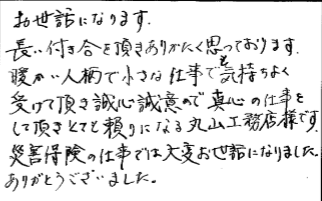 お世話になります.
長い付き合を頂きありがたく思っております.
暖かい人柄で小さな仕事でも気持ちよく
受けて頂き誠心誠意ので真心の仕事を
して頂きとても頼りになる丸山工務店様です.
災害保険の仕事では大変お世話になりました.
ありがとうございました。